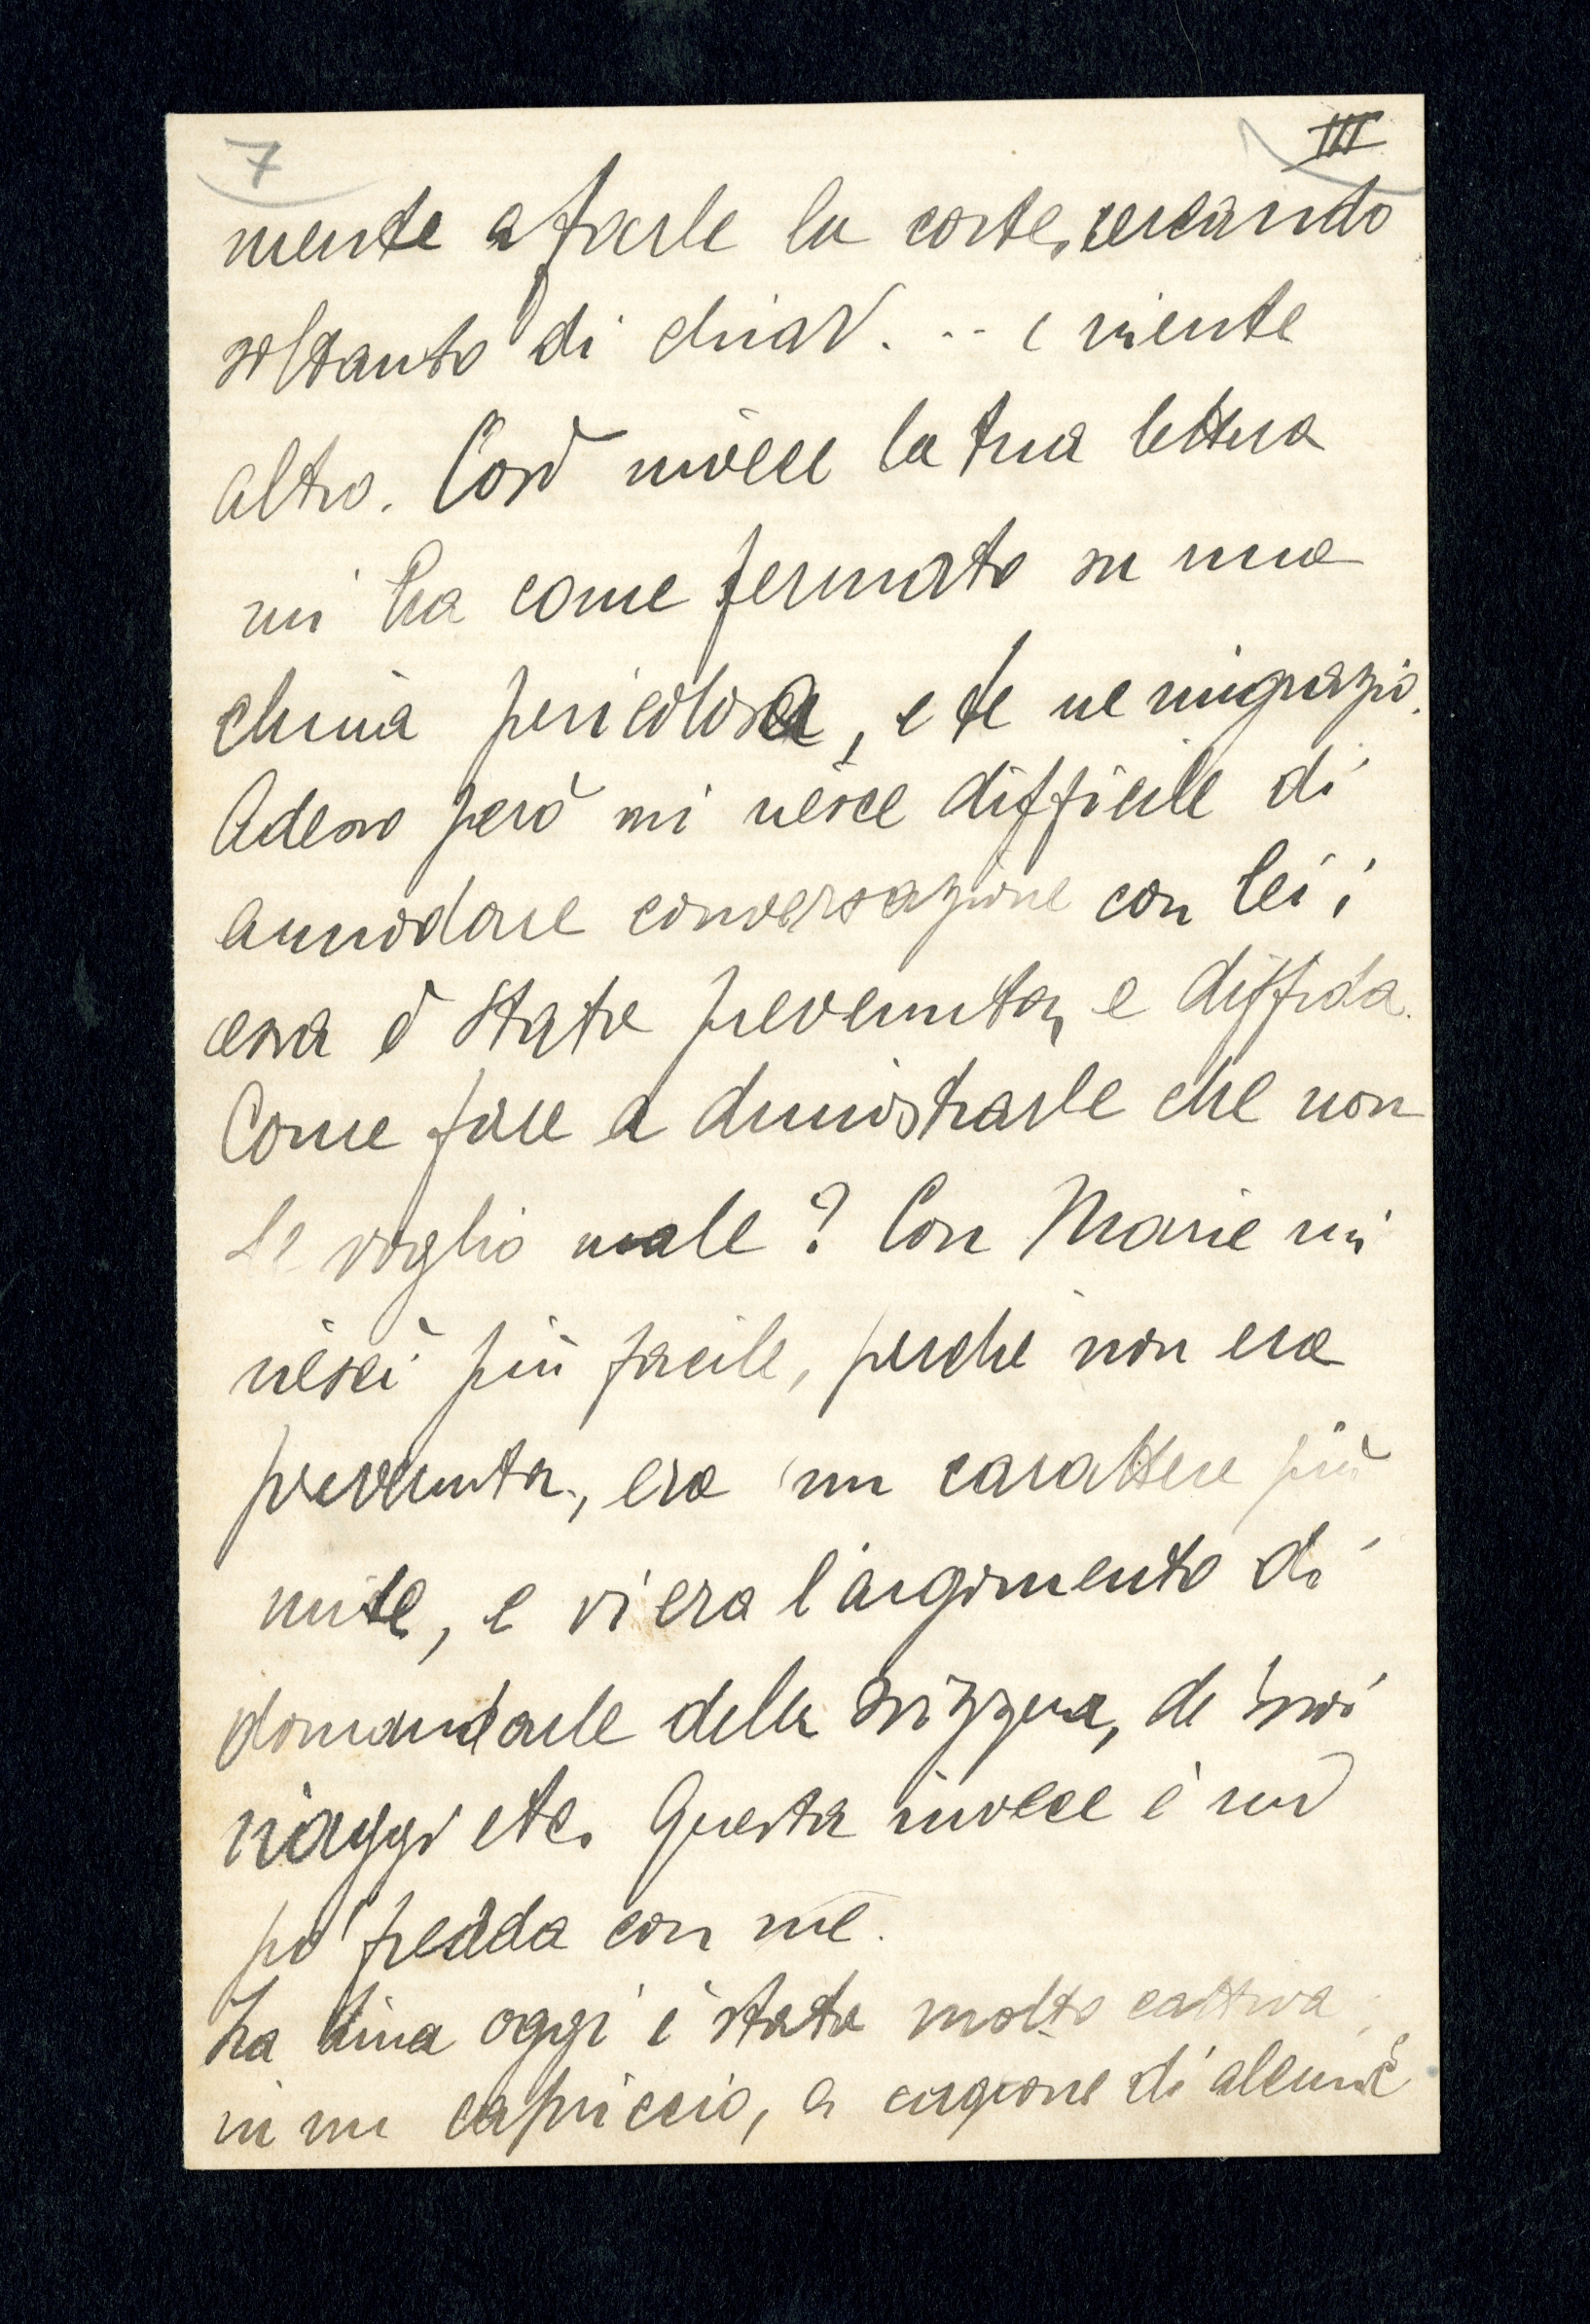 7 III
mente a farle la corte, cercando
soltanto di chiav... e niente
altro. Così invece la tua lettera
mi ha come fermato su una
china pericolosa, e te ne ringrazio.
Adesso però mi riesce difficile di
annodare conversazione con lei;
essa è stata prevenuta, e diffida.
Come fare a dimostrarle che non
le voglio male? Con Marie mi
riescì più facile, perchè non era
prevenuta, era un carattere più
mite, e vi era l'argomento di
domandarle della Svizzera, de' suoi
viaggi etc. Questa invece è un
po' fredda con me.
La Lina oggi è stata molto cattiva
in un capriccio, a cagione di alcune